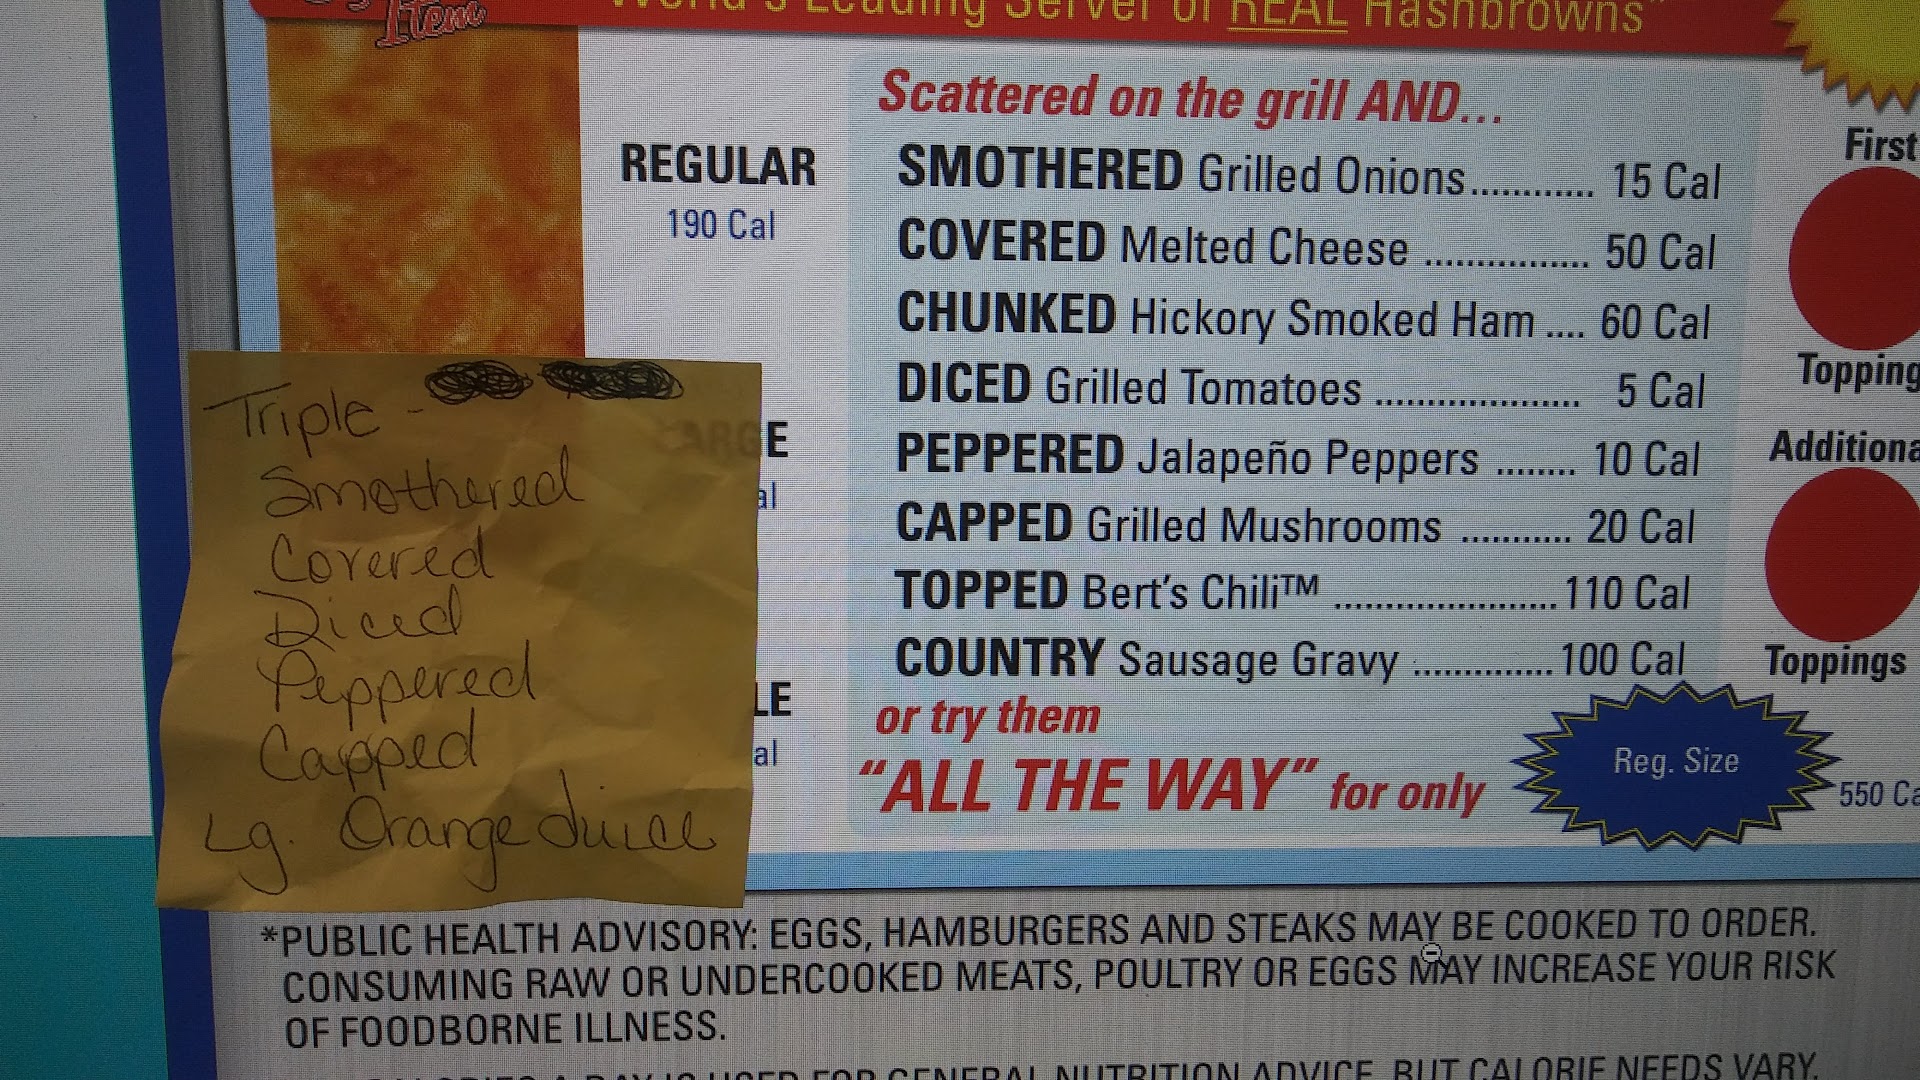 Item
World's Leading Server of REAL Hashbrowns"
Scattered on the grill AND...
REGULAR
190 Cal
SMOTHERED Grilled Onions............ 15 Cal
COVERED Melted Cheese ................ 50 Cal
CHUNKED Hickory Smoked Ham .... 60 Cal
DICED Grilled Tomatoes .................... 5 Cal
PEPPERED Jalapeño Peppers ........ 10 Cal
CAPPED Grilled Mushrooms ........... 20 Cal
TOPPED Bert's Chili™ ...................... 110 Cal
COUNTRY Sausage Gravy .............. 100 Cal
or try them
"ALL THE WAY" for only
Reg. Size
550 Ca
First
Topping
Additiona
Toppings
ARGE
al
LE
al
Triple -
Smothered
Covered
Diced
Peppered
Capped
Lg. Orange Juice
*PUBLIC HEALTH ADVISORY: EGGS, HAMBURGERS AND STEAKS MAY BE COOKED TO ORDER.
CONSUMING RAW OR UNDERCOOKED MEATS, POULTRY OR EGGS MAY INCREASE YOUR RISK
OF FOODBORNE ILLNESS.
CALORIES A DAY IS USED FOR GENERAL NUTRITION ADVICE, BUT CALORIE NEEDS VARY.